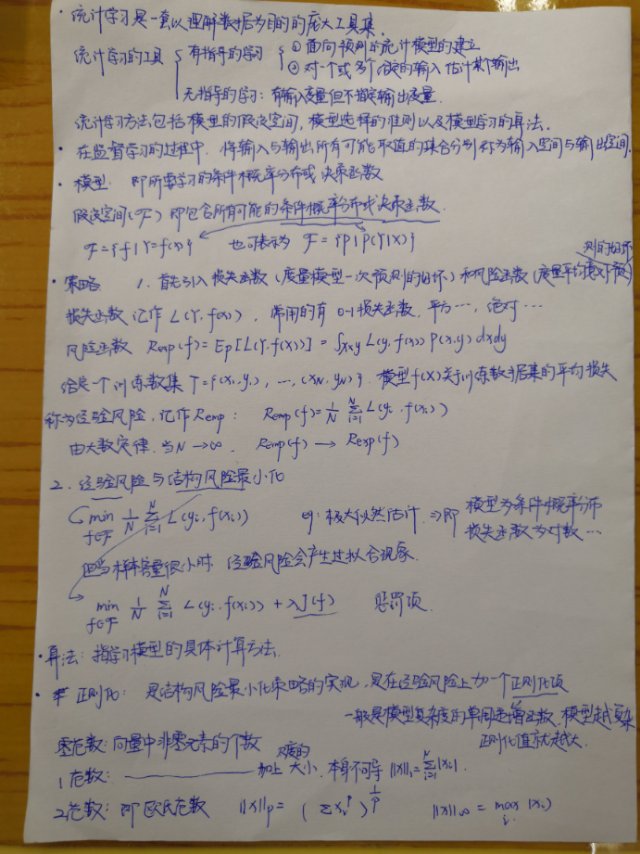 · 统计学习是一套以理解数据为目的的庞大工具集.
统计学习的工具 { 有指导的学习 { ① 面向预测的统计模型的建立
② 对一个或多个给定的输入估计某个输出
无指导的学习: 有输入变量但不指定输出变量.
统计学习方法包括模型的假设空间, 模型选择的准则以及模型学习的算法.
· 在监督学习的过程中. 将输入与输出所有可能取值的集合分别称为输入空间与输出空间.
· 模型. 即所需学习的条件概率分布或决策函数
假设空间(F) 即包含所有可能的条件概率分布或决策函数.
F = {f | Y = f(x)} 也可表示为 F = {P | P(Y|X)}
· 策略 1. 首先引入损失函数 (度量模型一次预测的好坏) 和风险函数 (度量平均意义下模型
预测的好坏
损失函数记作 L(Y, f(x)), 常用的有 0-1损失函数, 平方…, 绝对…
风险函数 Rexp(f) = Ep[L(Y, f(X))] = ∫x×y L(y, f(x)) P(x,y) dxdy
给定一个训练数集 T = {(x₁, y₁), …, (xN, yN)}. 模型 f(X) 关于训练数据集的平均损失
称为经验风险, 记作 Remp: Remp(f) = 1/N Σᵢ₌₁ᴺ L(yᵢ, f(xᵢ))
由大数定律, 当 N → ∞, Remp(f) → Rexp(f)
2. 经验风险与结构风险最小化
min f∈F 1/N Σᵢ₌₁ᴺ L(yᵢ, f(xᵢ)) eg: 极大似然估计. ⇒ 即 模型为条件概率分布
损失函数为对数…
但当样本容量很小时 经验风险会产生过拟合现象.
min f∈F 1/N Σᵢ₌₁ᴺ L(yᵢ, f(xᵢ)) + λJ(f) 惩罚项.
· 算法: 指学习模型的具体计算方法.
· 正则化: 是结构风险最小化策略的实现, 是在经验风险上加一个正则化项
一般是模型复杂度的单调递增函数. 模型越复杂
正则化值就越大.
零范数: 向量中非零元素的个数
1范数: ———— 加上 尺度的 大小. 本身不可导 ||x||₁ = Σᵢ₌₁ᴺ |xᵢ|.
2范数: 即欧氏范数 ||x||p = (Σ xᵢᵖ)^(1/p) ||x||∞ = max i |xᵢ|